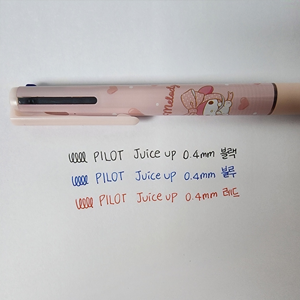 Melody
PILOT Juice up 0.4mm 블랙
PILOT Juice up 0.4mm 블루
PILOT Juice up 0.4mm 레드